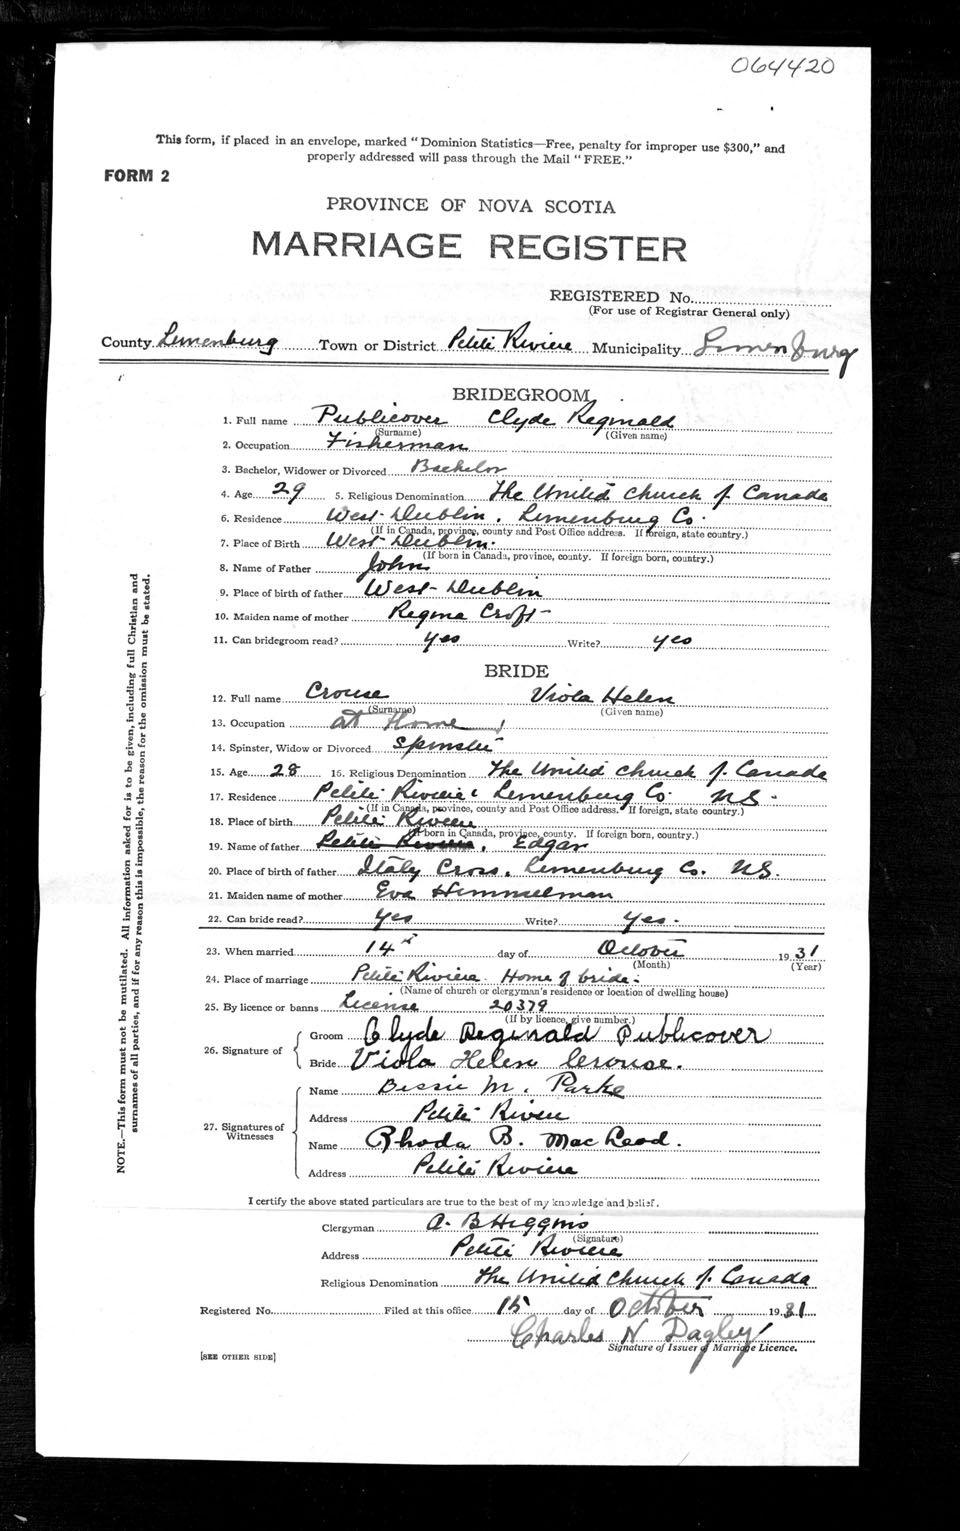 064420
This form, if placed in an envelope, marked "Dominion Statistics—Free, penalty for improper use $300," and
properly addressed will pass through the Mail "FREE."
FORM 2
PROVINCE OF NOVA SCOTIA
MARRIAGE REGISTER
REGISTERED No.
(For use of Registrar General only)
County Lunenburg Town or District Petite Riviere Municipality Lunenburg
BRIDEGROOM
1. Full name Publicover Clyde Reginald
(Surname) (Given name)
2. Occupation Fisherman
3. Bachelor, Widower or Divorced Bachelor
4. Age 29 5. Religious Denomination The United Church of Canada
6. Residence West Dublin, Lunenburg Co.
(If in Canada, province, county and Post Office address. If foreign, state country.)
7. Place of Birth West Dublin.
(If born in Canada, province, county. If foreign born, country.)
8. Name of Father John
9. Place of birth of father West Dublin
10. Maiden name of mother Regina Croft
11. Can bridegroom read? yes Write? yes
BRIDE
12. Full name Crouse Viola Helen
(Surname) (Given name)
13. Occupation at Home
14. Spinster, Widow or Divorced Spinster
15. Age 28 16. Religious Denomination The United Church of Canada
17. Residence Petite Riviere Lunenburg Co NS.
(If in Canada, province, county and Post Office address. If foreign, state country.)
18. Place of birth Petite Riviere
(If born in Canada, province, county. If foreign born, country.)
19. Name of father Petite Riviere, Edgar
20. Place of birth of father Italy Cross, Lunenburg Co. NS.
21. Maiden name of mother Eva Himmelman
22. Can bride read? yes Write? yes.
23. When married 14th day of October 1931
(Month) (Year)
24. Place of marriage Petite Riviere. Home of bride.
(Name of church or clergyman's residence or location of dwelling house)
25. By licence or banns License 20379
(If by licence, give number.)
26. Signature of
Groom Clyde Reginald Publicover
Bride Viola Helen Crouse.
27. Signatures of Witnesses
Name Bessie M. Parke
Address Petite Riviere
Name Rhoda B. MacLeod.
Address Petite Riviere
I certify the above stated particulars are true to the best of my knowledge and belief.
Clergyman A. B Higgins
(Signature)
Address Petite Riviere
Religious Denomination The United Church of Canada
Registered No. Filed at this office 15 day of October 1931
Charles N Dagley
Signature of Issuer of Marriage Licence.
[SEE OTHER SIDE]
NOTE.—This form must not be mutilated. All information asked for is to be given, including full Christian and
surnames of all parties, and if for any reason this is impossible, the reason for the omission must be stated.